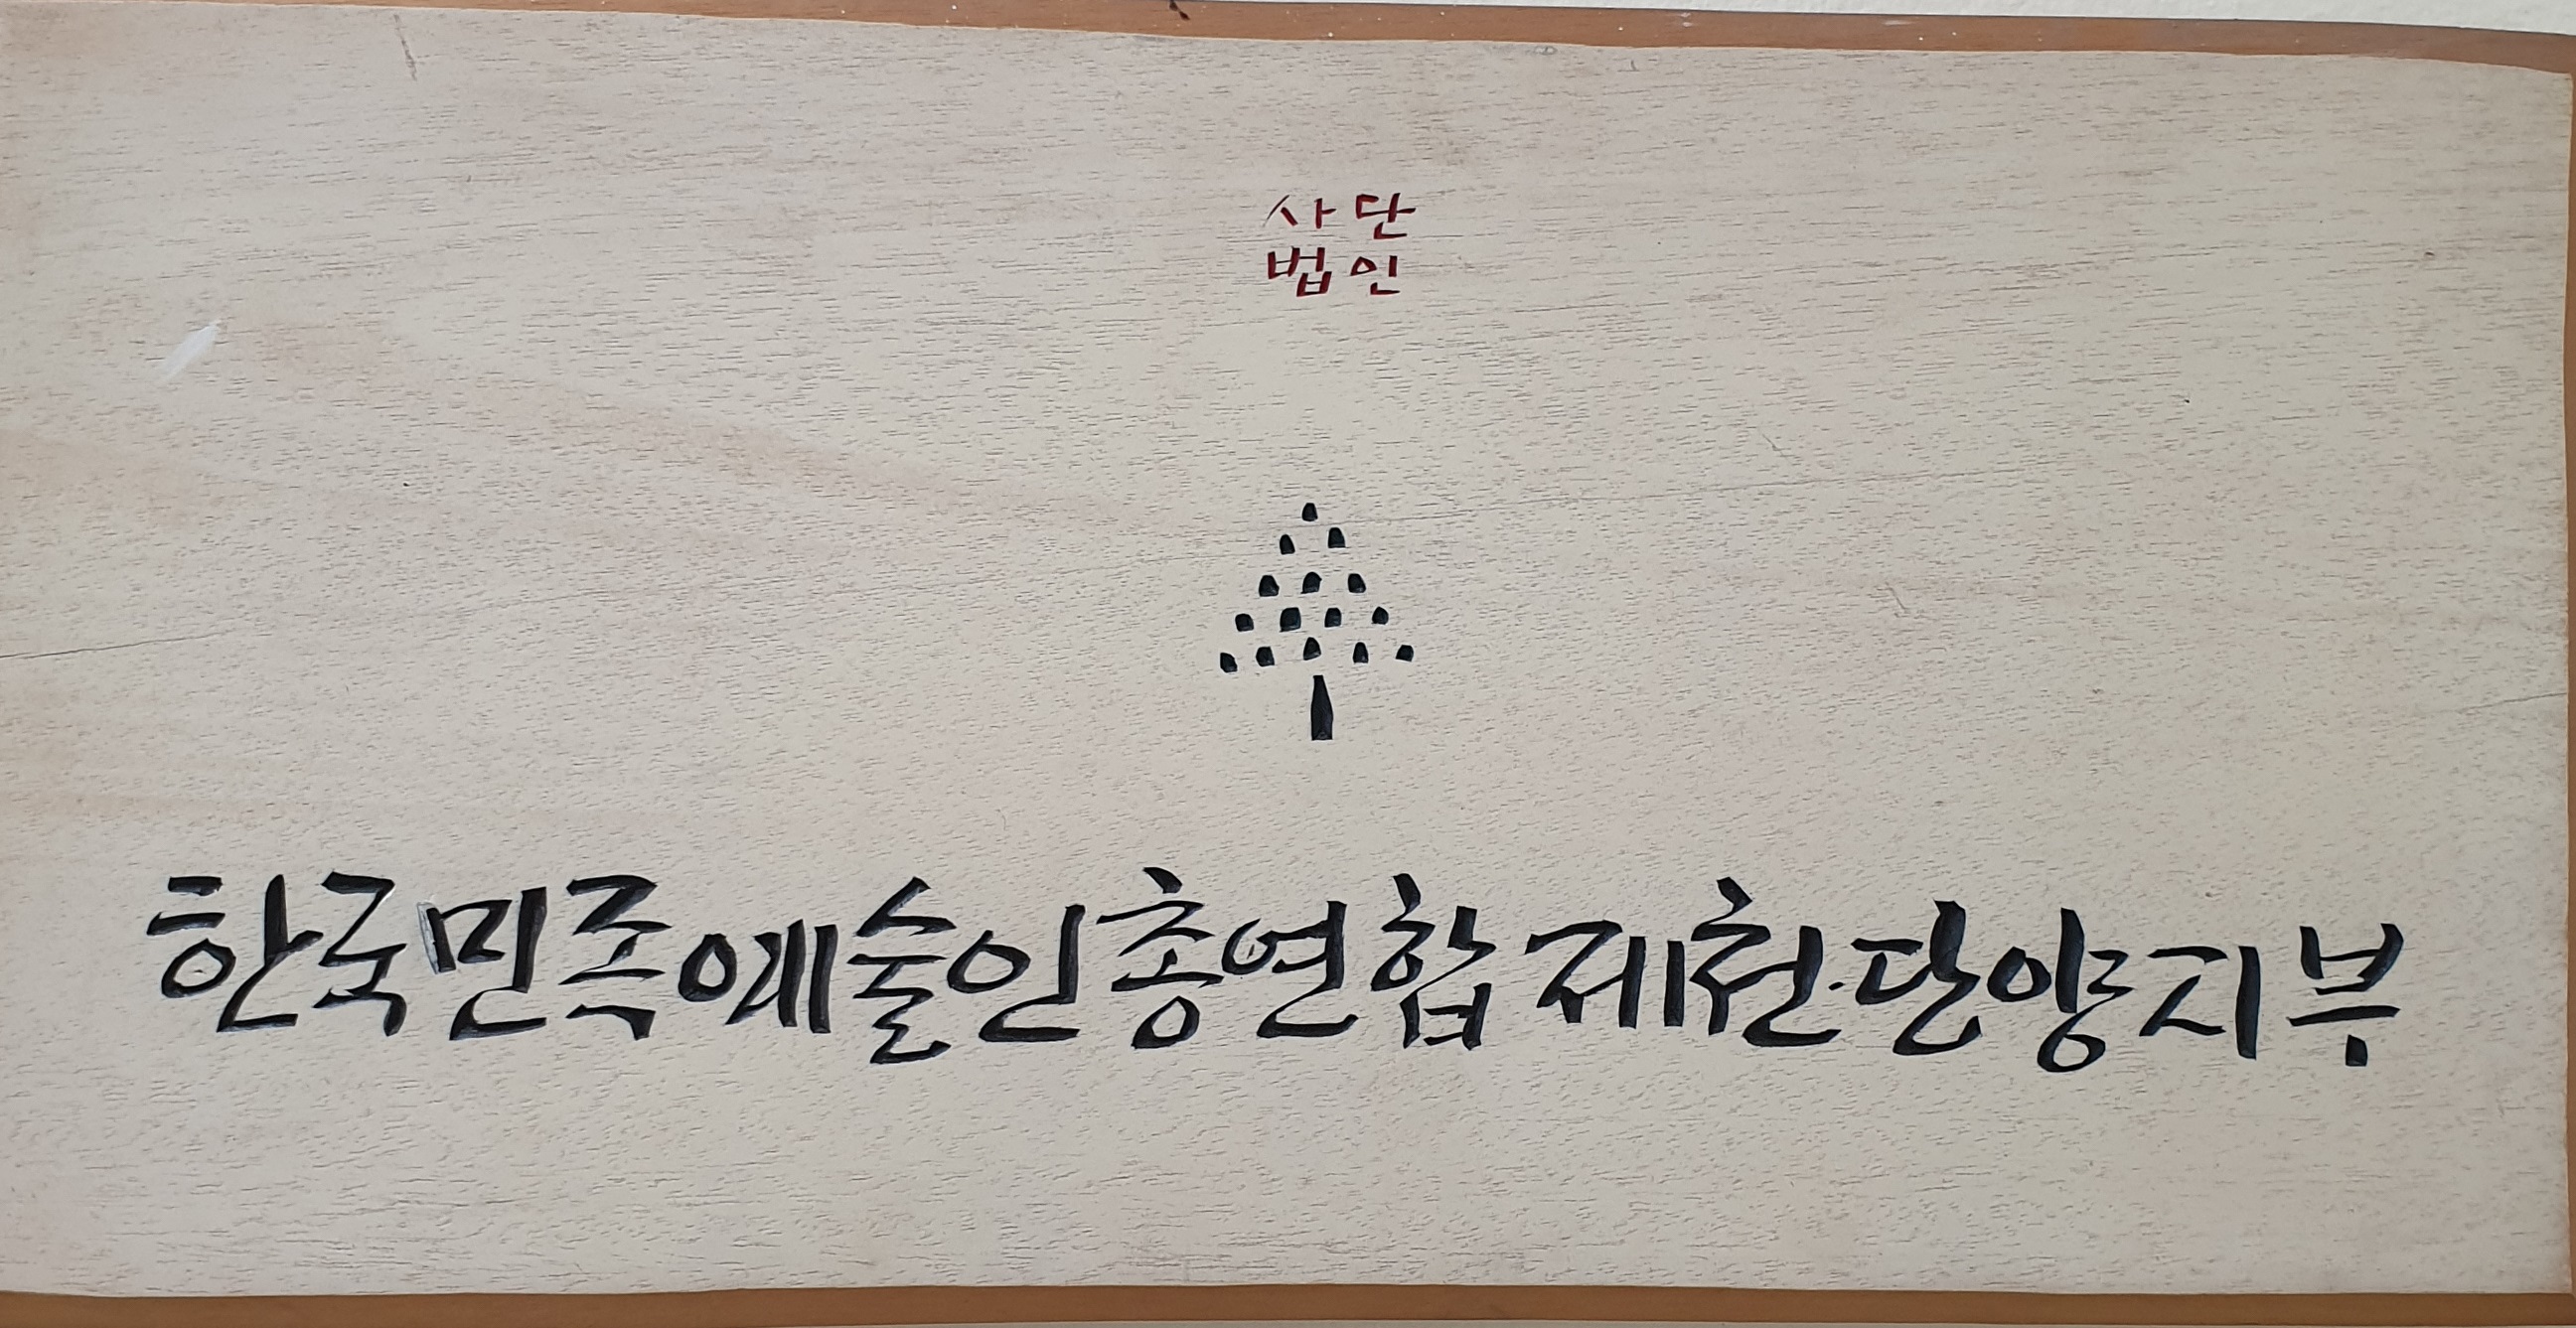 사단
법인
한국민족예술인총연합 제천·단양지부